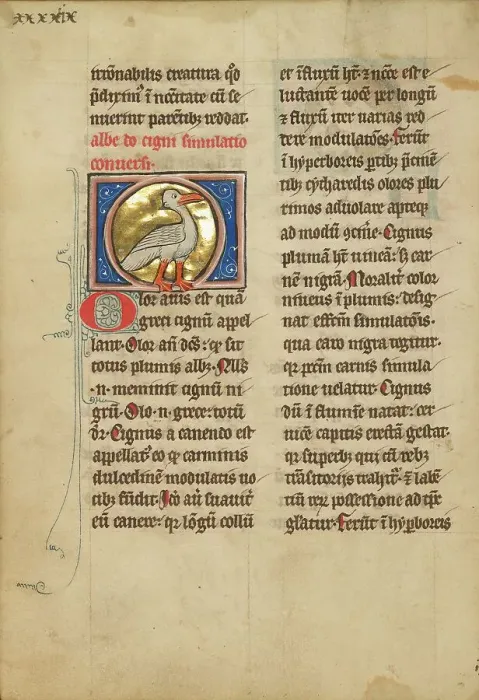 xxxxix
trionabilis creatura qͦd
p̄diximꝰ ī nccītate cū se
nuerint parētibꝫ reddat.
albe do cigni simulatio
conuersi.
Olor auis est quā
greci cignū appel
lant. Olor aū dc̄s: eo ꝙ sit
totus plumis albꝫ. Nłłs
.n. meminit cignū ni
grū. Olo .n. grece: totū
dr̄. Cignus a canendo est
appellatꝰ eo ꝙ carminis
dulcedinē modulatis uo
cibꝫ fūdit. Iō aū suauit̄
eū canere: qꝛ lōgū collū
et īfluxū ht̄. ⁊ ncc̄e est e
luctantē uocē per longū
⁊ fluxū iter uarias red
dere modulatōes. Ferūt
ī hyperboreis ꝑtibꝫ p̄cinē
tibꝫ cycharedis olores plu
rimos aduolare apteqꝫ
ad modū ↄcine. Cignus
plumā ht̄ niueā: sꝫ car
nē nigrā. Moralit̄ color
niueus ī plumis: desig
nat effcm̄ simulatōis.
qua caro nigra tegitur.
qꝛ pccm̄ carnis simula
tione uelatur. Cignus
dū ī flumīe natat: cer
uicē capitis erectā gestat.
qꝛ supbꝰ qui cū rebꝫ
trāsitorijs trahit̄: ⁊ labē
tiū reꝝ possessione ad tp̄s
gl̄atur. Ferūt ī hyꝑboreis